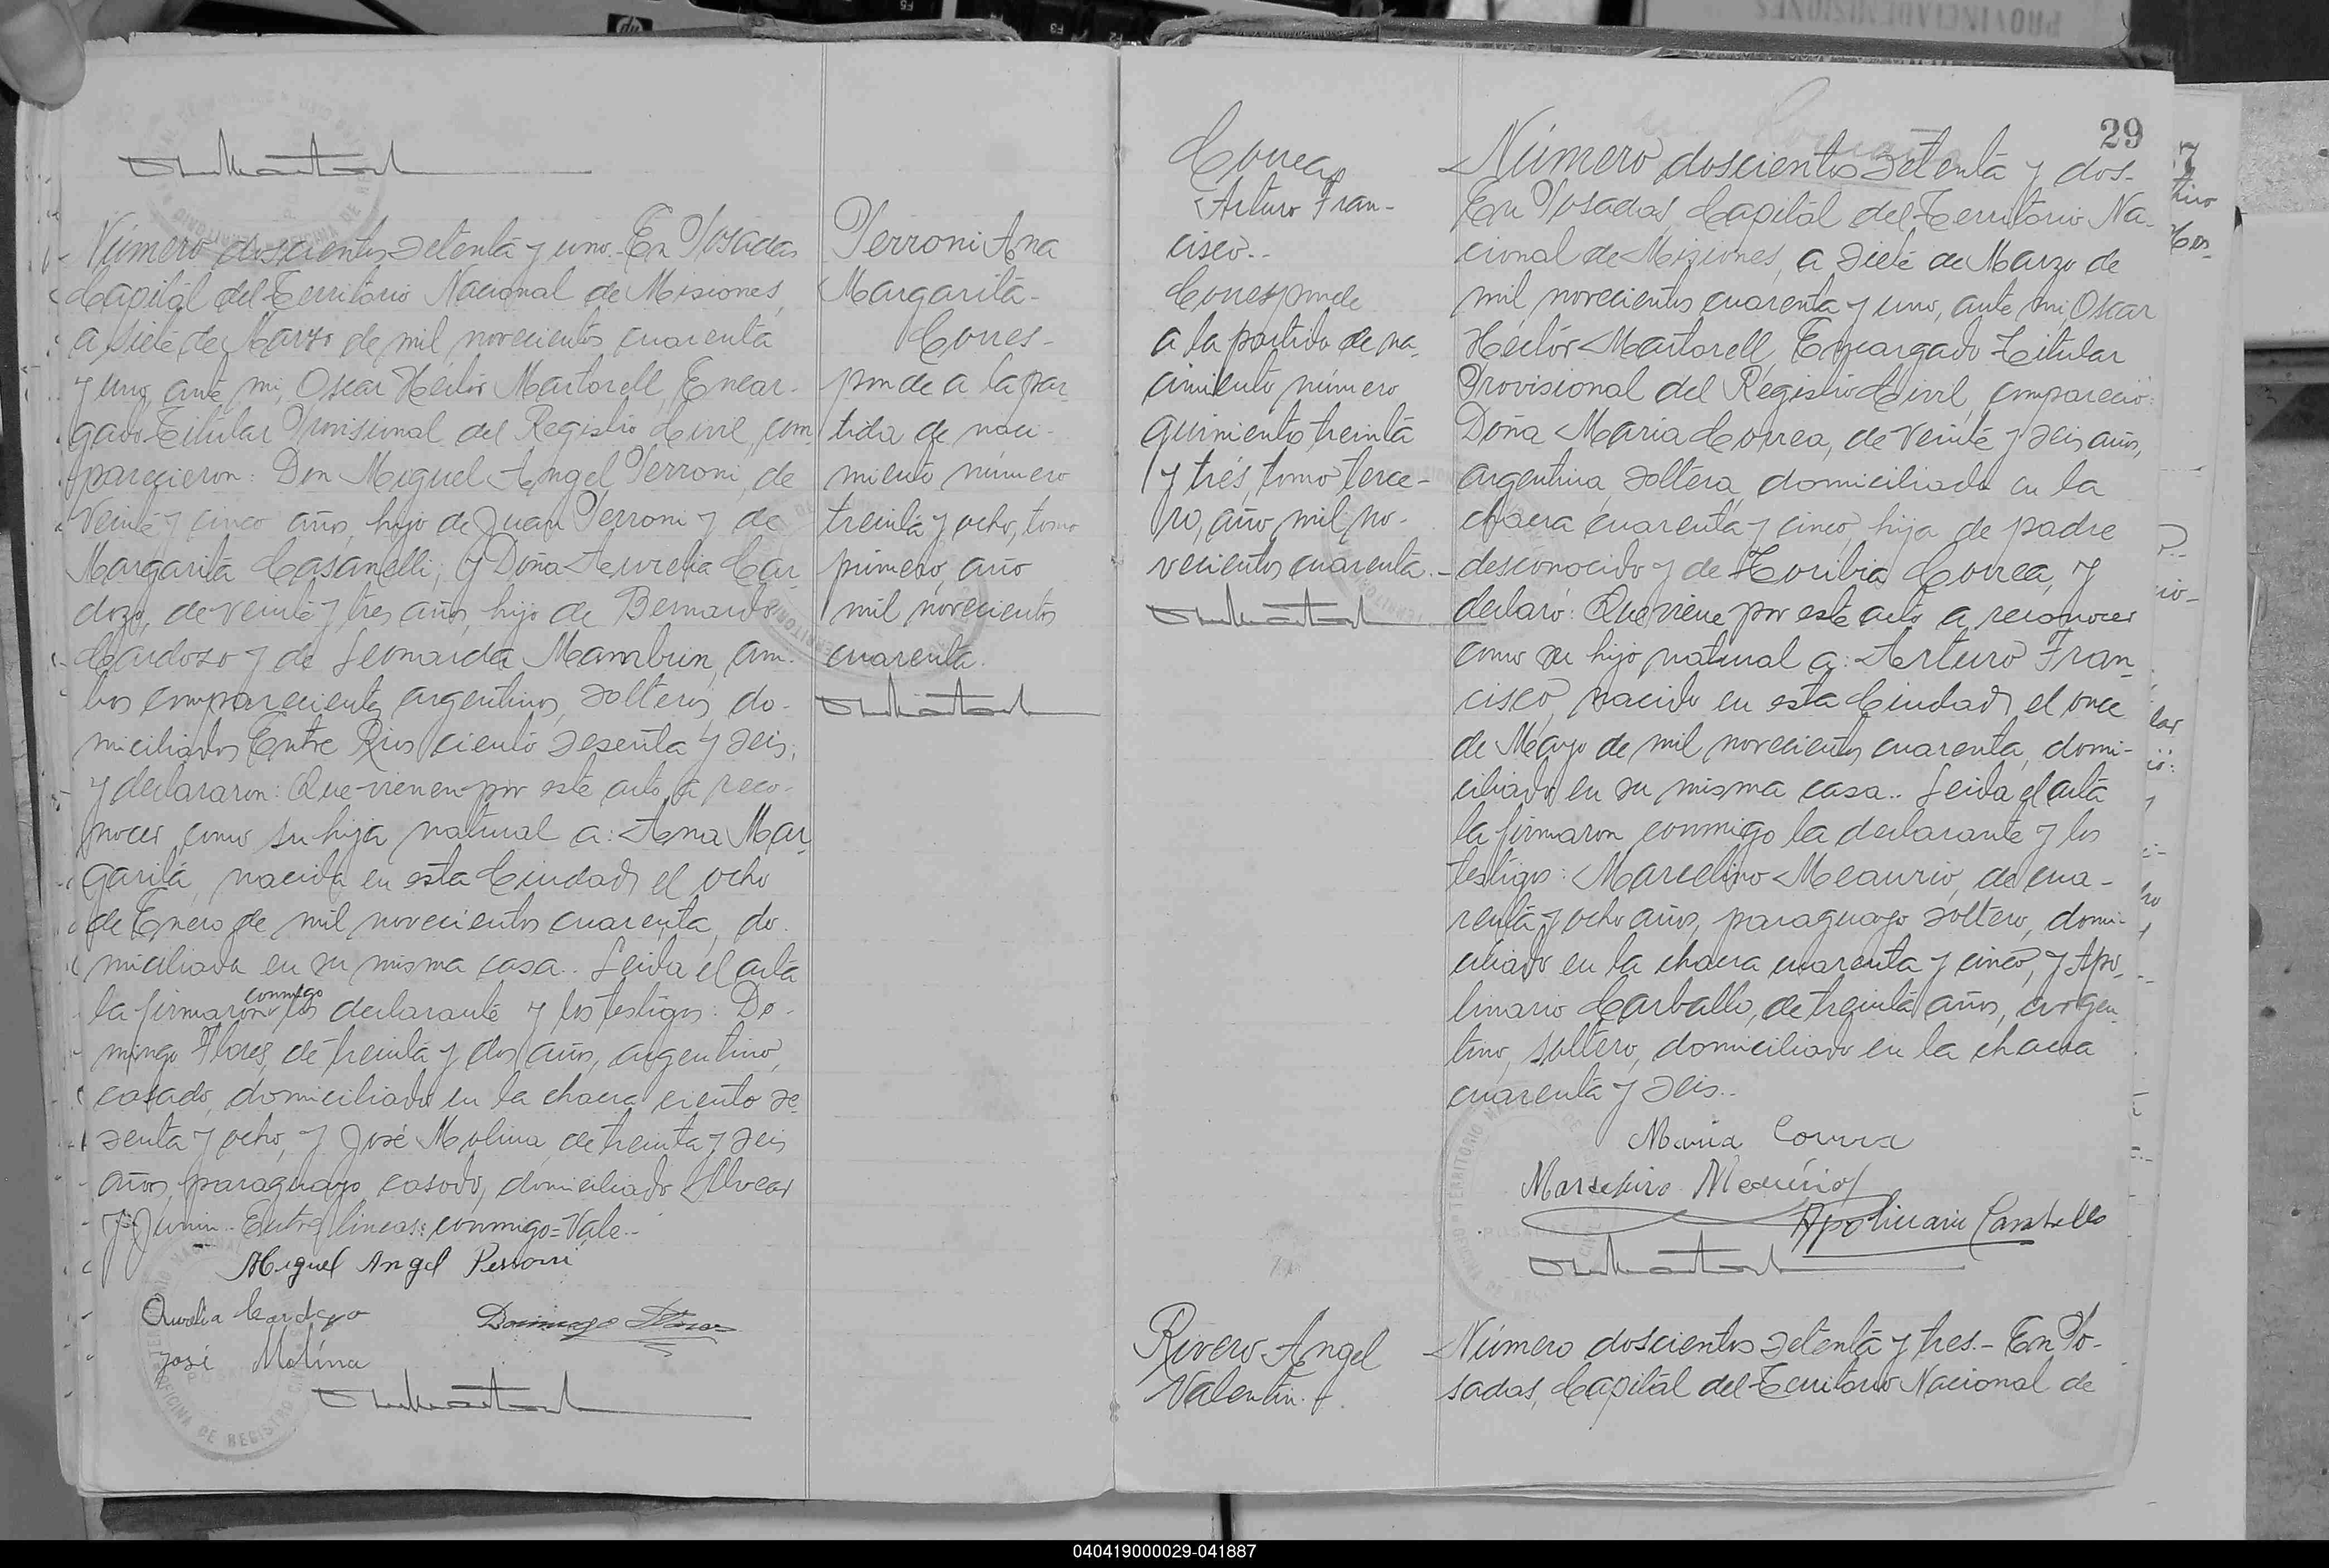 Número doscientos setenta y uno.- En Posadas
Capital del Territorio Nacional de Misiones,
a siete de Marzo de mil novecientos cuarenta
y uno, ante mi, Oscar Héctor Martorell, Encar-
gado Titular Provisional del Registro Civil, com
parecieron: Don Miguel Angel Perroni, de
veinte y cinco años, hijo de Juan Perroni y de
Margarita Casanelli; y Doña Aurelia Car
dozo, de veinte y tres años, hija de Bernardo
Cardozo y de Leonarda Mambrin, am-
bos comparecientes argentinos, solteros, do-
miciliados Entre Rios ciento sesenta y seis,
y declararon: Que vienen por este acto a reco-
nocer como su hija natural a: Ana Mar
garita, nacida en esta Ciudad el ocho
de Enero de mil novecientos cuarenta, do-
miciliada en su misma casa.. Leida el acta
conmigo
la firmaron los declarante y los testigos: Do-
mingo Flores, de treinta y dos años, argentino,
casado, domiciliado en la chacra ciento se-
senta y ocho, y José Molina, de treinta y seis
años, paraguayo, casado, domiciliado Alvear
y Junin.. Entre lineas: conmigo=Vale..
Miguel Angel Perroni
Aurelia Cardozo Domingo Flores
José Molina
Perroni Ana
Margarita-
Corres-
ponde a la par
tida de naci-
miento número
treinta y ocho, tomo
primero, año
mil novecientos
cuarenta.
29
Correa,
Arturo Fran-
cisco..
Corresponde
a la partida de na-
cimiento número
quinientos treinta
y trés, tomo terce-
ro, año mil no-
vecientos cuarenta.-
Número doscientos setenta y dos-
En Posadas, Capital del Territorio Na-
cional de Misiones, a siete de Marzo de
mil novecientos cuarenta y uno, ante mi Oscar
Héctor Martorell, Encargado Titular
Provisional del Registro Civil, compareció:
Doña Maria Correa, de veinte y seis años,
argentina, soltera, domiciliada en la
chacra cuarenta y cinco, hija de padre
desconocido y de Toribia Correa, y
declaró: Que viene por este acto a reconocer
como su hijo natural a: Arturo Fran
cisco, nacido en esta Ciudad el once
de Mayo de mil novecientos cuarenta, domi-
ciliado en su misma casa.. Leida el acta
la firmaron conmigo la declarante y los
testigos: Marcelino Meaurio, de cua-
renta y ocho años, paraguayo soltero, domi-
ciliado en la chacra cuarenta y cinco, y Apo
linario Carballo, de treinta años, argen
tino, soltero, domiciliado en la chacra
cuarenta y seis..
Maria Correa
Marcelino Meaurio
Apolinario Carballo
Rivero Angel
Valentin.
Número doscientos setenta y tres.- En Po-
sadas, Capital del Territorio Nacional de
040419000029-041887